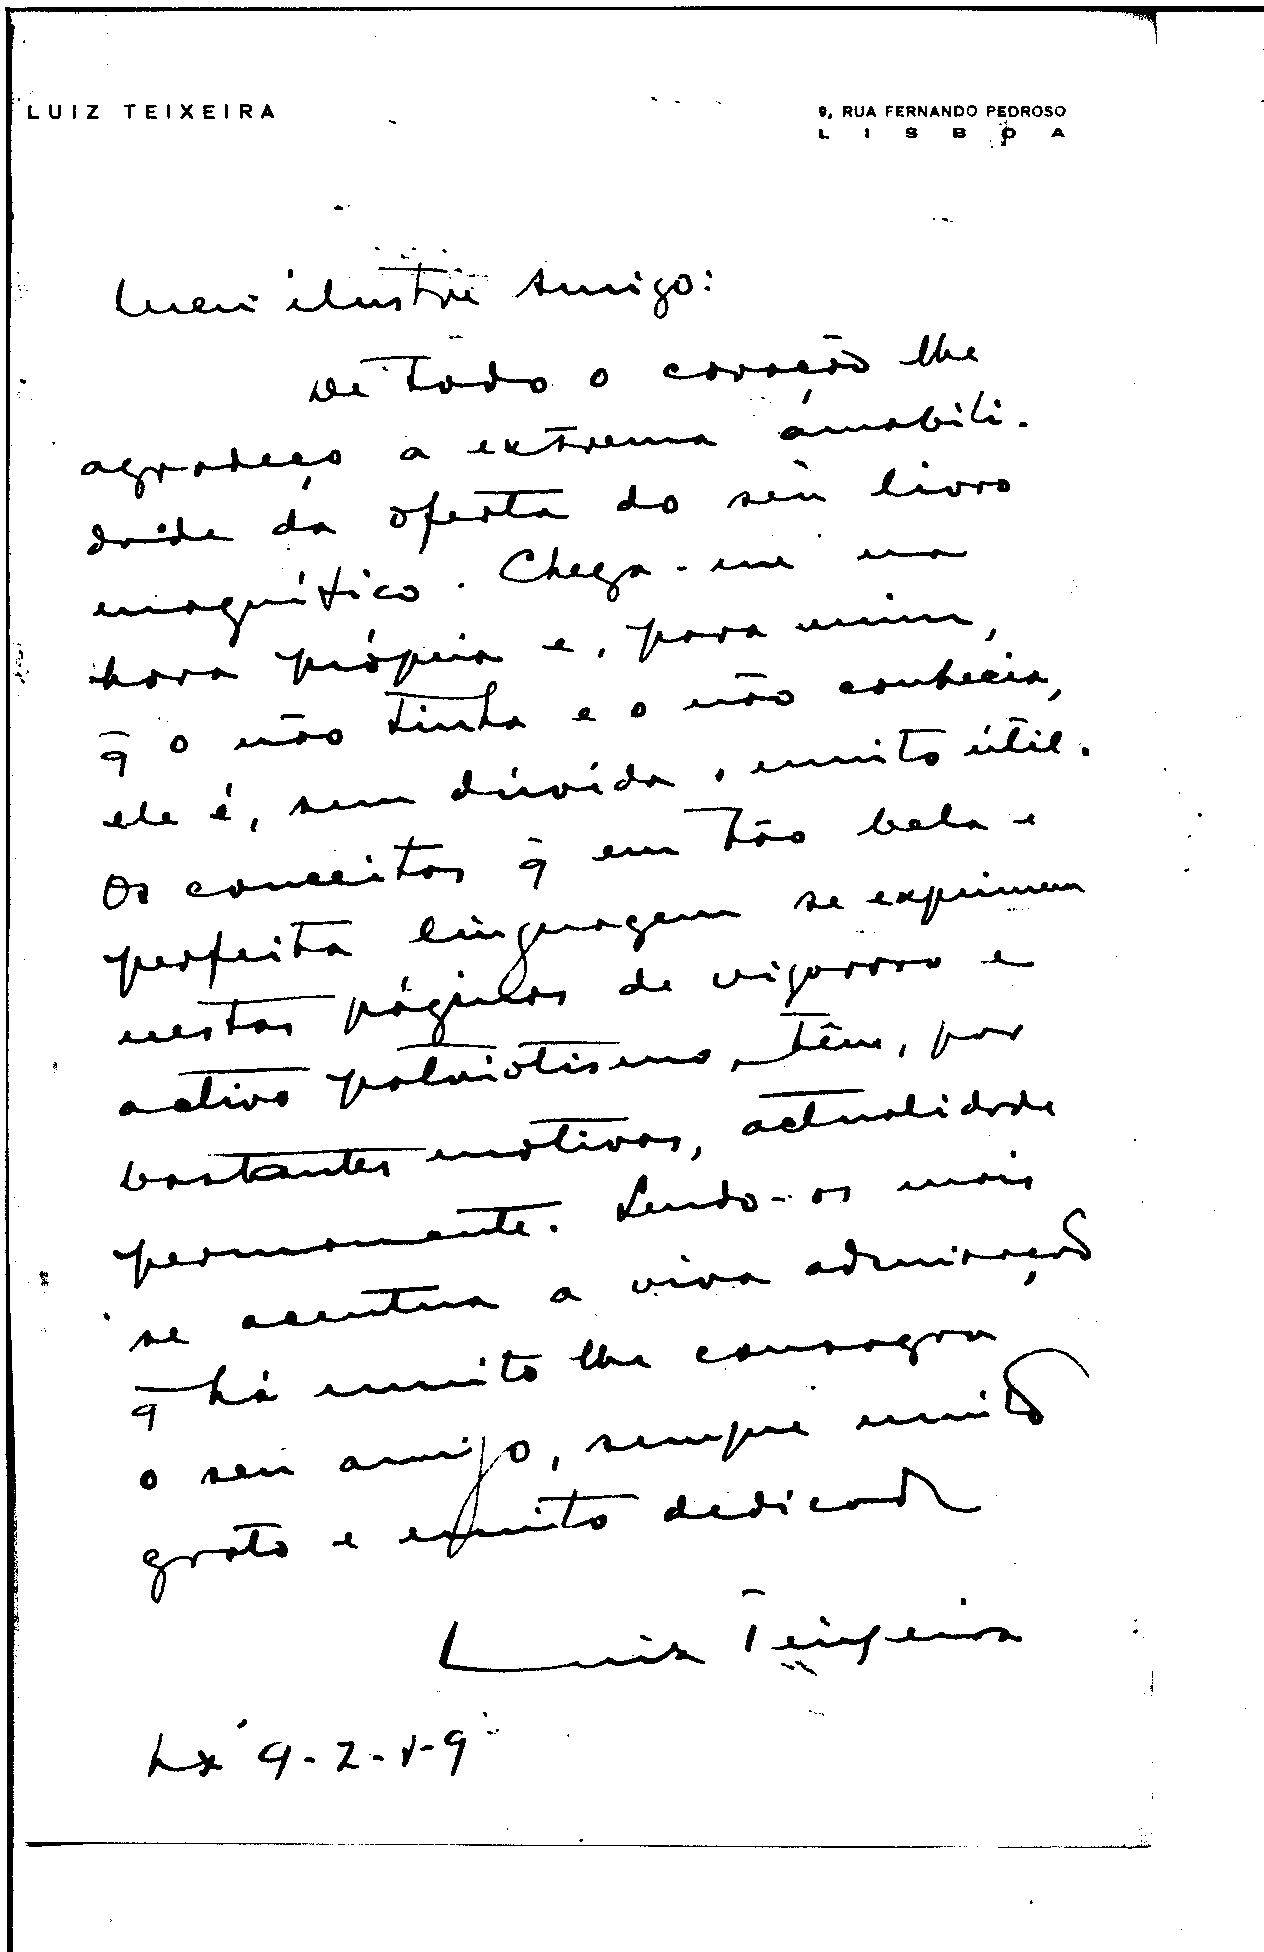 LUIZ TEIXEIRA
9, RUA FERNANDO PEDROSO
LISBOA
Meu ilustre Amigo:
De todo o coração lhe
agradeço a extrema amabili-
dade da oferta do seu livro
magnífico. Chega-me na
hora própria e, para mim,
q̃ o não tinha e o não conhecia,
ele é, sem dúvida, muito útil.
Os conceitos q̃ em tão bela e
perfeita linguagem se exprimem
nestas páginas de vigoroso e
activo patriotismo, têm, por
bastantes motivos, actualidade
permanente. Lendo-os mais
se acentua a viva admiração
q̃ há muito lhe consagra
o seu amigo, sempre muito
grato e muito dedicado
Luiz Teixeira
Lx 9-2-